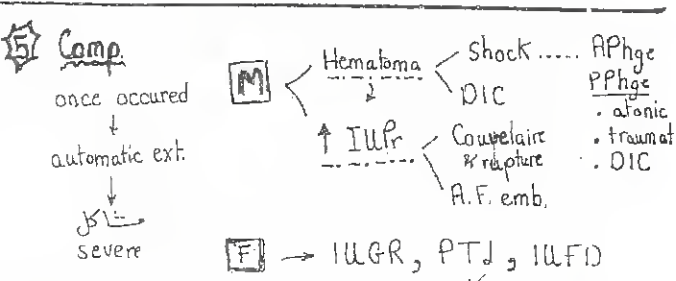 5 Comp.
once occured
↓
automatic ext.
↓
مشاكل
severe
M
Hematoma
↓
Shock ..... APhge
DIC
PPhge
. atonic
. traumat
. DIC
↑ IUPr
Couvelaire
& rupture
A.F. emb.
F → IUGR, PTL, IUFD